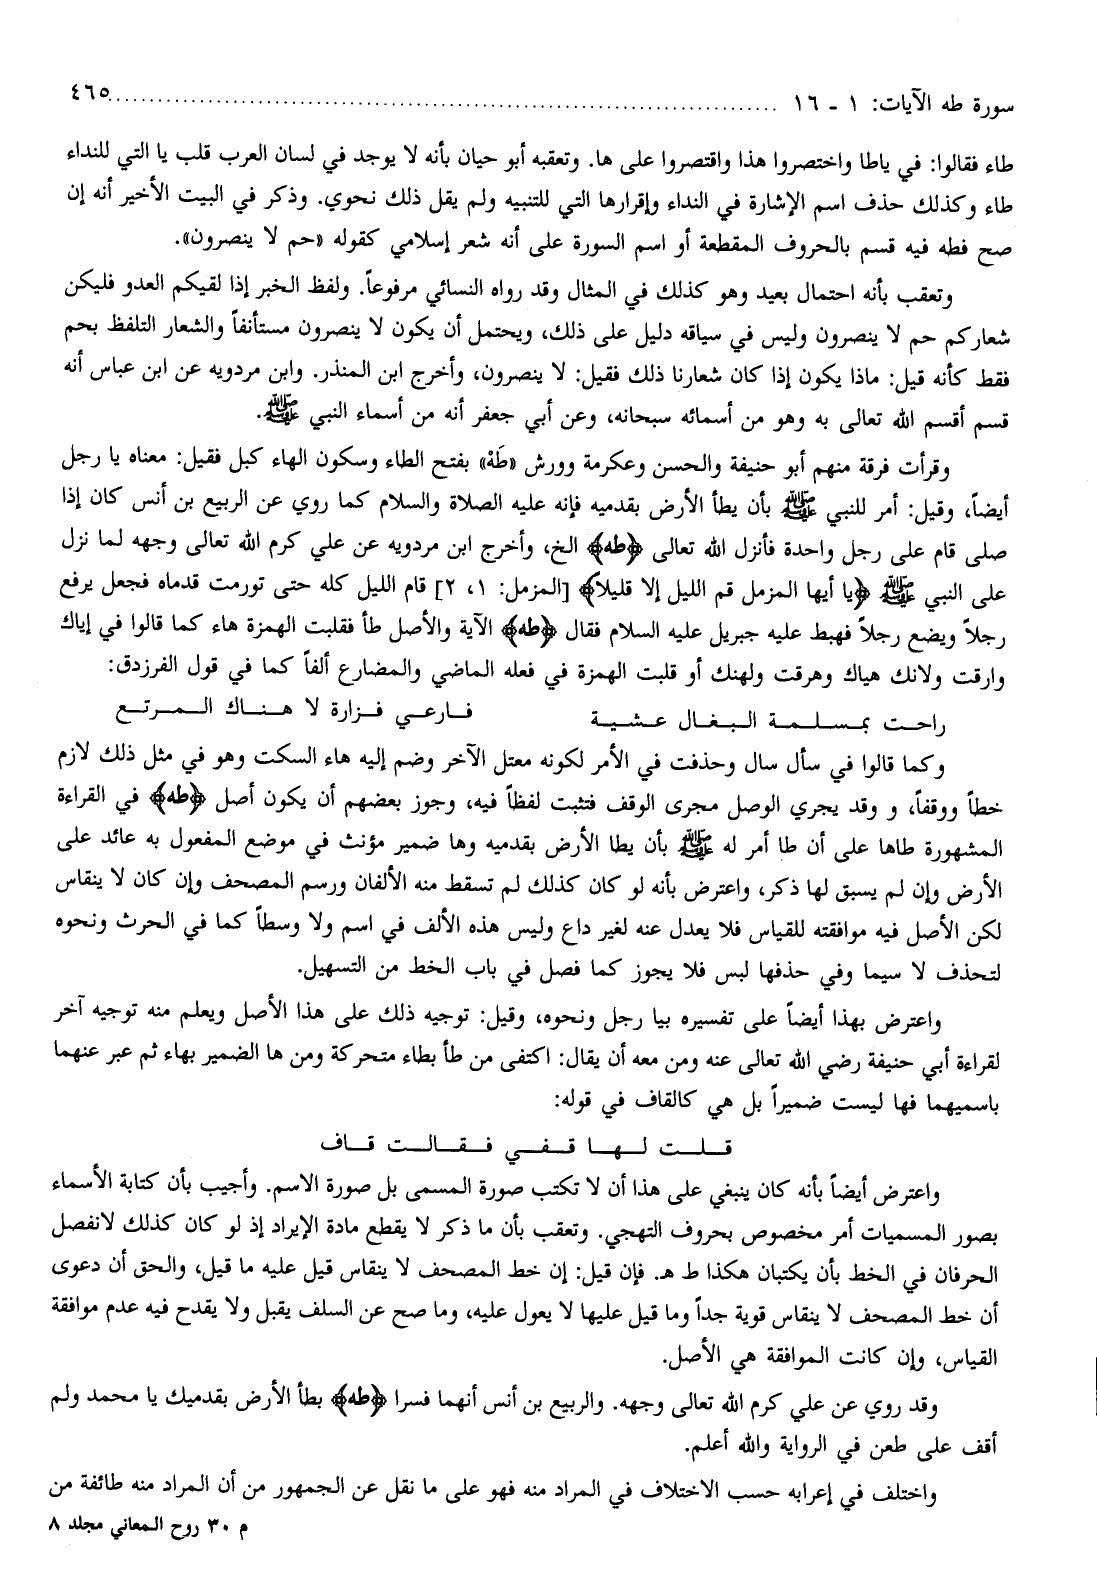 سورة طه الآيات: ١ ـ ١٦ ........................................................ ٤٦٥
طاء فقالوا: في ياطا واختصروا هذا واقتصروا على ها. وتعقبه أبو حيان بأنه لا يوجد في لسان العرب قلب يا التي للنداء
طاء وكذلك حذف اسم الإشارة في النداء وإقرارها التي للتنبيه ولم يقل ذلك نحوي. وذكر في البيت الأخير أنه إن
صح فطه فيه قسم بالحروف المقطعة أو اسم السورة على أنه شعر إسلامي كقوله «حم لا ينصرون».
وتعقب بأنه احتمال بعيد وهو كذلك في المثال وقد رواه النسائي مرفوعاً. ولفظ الخبر إذا لقيكم العدو فليكن
شعاركم حم لا ينصرون وليس في سياقه دليل على ذلك، ويحتمل أن يكون لا ينصرون مستأنفاً والشعار التلفظ بحم
فقط كأنه قيل: ماذا يكون إذا كان شعارنا ذلك فقيل: لا ينصرون، وأخرج ابن المنذر. وابن مردويه عن ابن عباس أنه
قسم أقسم الله تعالى به وهو من أسمائه سبحانه، وعن أبي جعفر أنه من أسماء النبي ﷺ.
وقرأت فرقة منهم أبو حنيفة والحسن وعكرمة وورش «طَهْ» بفتح الطاء وسكون الهاء كبل فقيل: معناه يا رجل
أيضاً، وقيل: أمر للنبي ﷺ بأن يطأ الأرض بقدميه فإنه عليه الصلاة والسلام كما روي عن الربيع بن أنس كان إذا
صلى قام على رجل واحدة فأنزل الله تعالى ﴿طه﴾ الخ، وأخرج ابن مردويه عن علي كرم الله تعالى وجهه لما نزل
على النبي ﷺ ﴿يا أيها المزمل قم الليل إلا قليلاً﴾ [المزمل: ١، ٢] قام الليل كله حتى تورمت قدماه فجعل يرفع
رجلاً ويضع رجلاً فهبط عليه جبريل عليه السلام فقال ﴿طه﴾ الآية والأصل طأ فقلبت الهمزة هاء كما قالوا في إياك
وارقت ولانك هياك وهرقت ولهنك أو قلبت الهمزة في فعله الماضي والمضارع ألفاً كما في قول الفرزدق:
راحت بمسلمة البغال عشية    فارعي فزارة لا هناك المرتع
وكما قالوا في سأل سال وحذفت في الأمر لكونه معتل الآخر وضم إليه هاء السكت وهو في مثل ذلك لازم
خطاً ووقفاً، و وقد يجري الوصل مجرى الوقف فتثبت لفظاً فيه، وجوز بعضهم أن يكون أصل ﴿طه﴾ في القراءة
المشهورة طاها على أن طا أمر له ﷺ بأن يطا الأرض بقدميه وها ضمير مؤنث في موضع المفعول به عائد على
الأرض وإن لم يسبق لها ذكر، واعترض بأنه لو كان كذلك لم تسقط منه الألفان ورسم المصحف وإن كان لا ينقاس
لكن الأصل فيه موافقته للقياس فلا يعدل عنه لغير داع وليس هذه الألف في اسم ولا وسطاً كما في الحرث ونحوه
لتحذف لا سيما وفي حذفها لبس فلا يجوز كما فصل في باب الخط من التسهيل.
واعترض بهذا أيضاً على تفسيره بيا رجل ونحوه، وقيل: توجيه ذلك على هذا الأصل ويعلم منه توجيه آخر
لقراءة أبي حنيفة رضي الله تعالى عنه ومن معه أن يقال: اكتفى من طأ بطاء متحركة ومن ها الضمير بهاء ثم عبر عنهما
باسميهما فها ليست ضميراً بل هي كالقاف في قوله:
قلت لها قفي فقالت قاف
واعترض أيضاً بأنه كان ينبغي على هذا أن لا تكتب صورة المسمى بل صورة الاسم. وأجيب بأن كتابة الأسماء
بصور المسميات أمر مخصوص بحروف التهجي. وتعقب بأن ما ذكر لا يقطع مادة الإيراد إذ لو كان كذلك لانفصل
الحرفان في الخط بأن يكتبان هكذا ط هـ. فإن قيل: إن خط المصحف لا ينقاس قيل عليه ما قيل، والحق أن دعوى
أن خط المصحف لا ينقاس قوية جداً وما قيل عليها لا يعول عليه، وما صح عن السلف يقبل ولا يقدح فيه عدم موافقة
القياس، وإن كانت الموافقة هي الأصل.
وقد روي عن علي كرم الله تعالى وجهه. والربيع بن أنس أنهما فسرا ﴿طه﴾ بطأ الأرض بقدميك يا محمد ولم
أقف على طعن في الرواية والله أعلم.
واختلف في إعرابه حسب الاختلاف في المراد منه فهو على ما نقل عن الجمهور من أن المراد منه طائفة من
م ٣٠ روح المعاني مجلد ٨